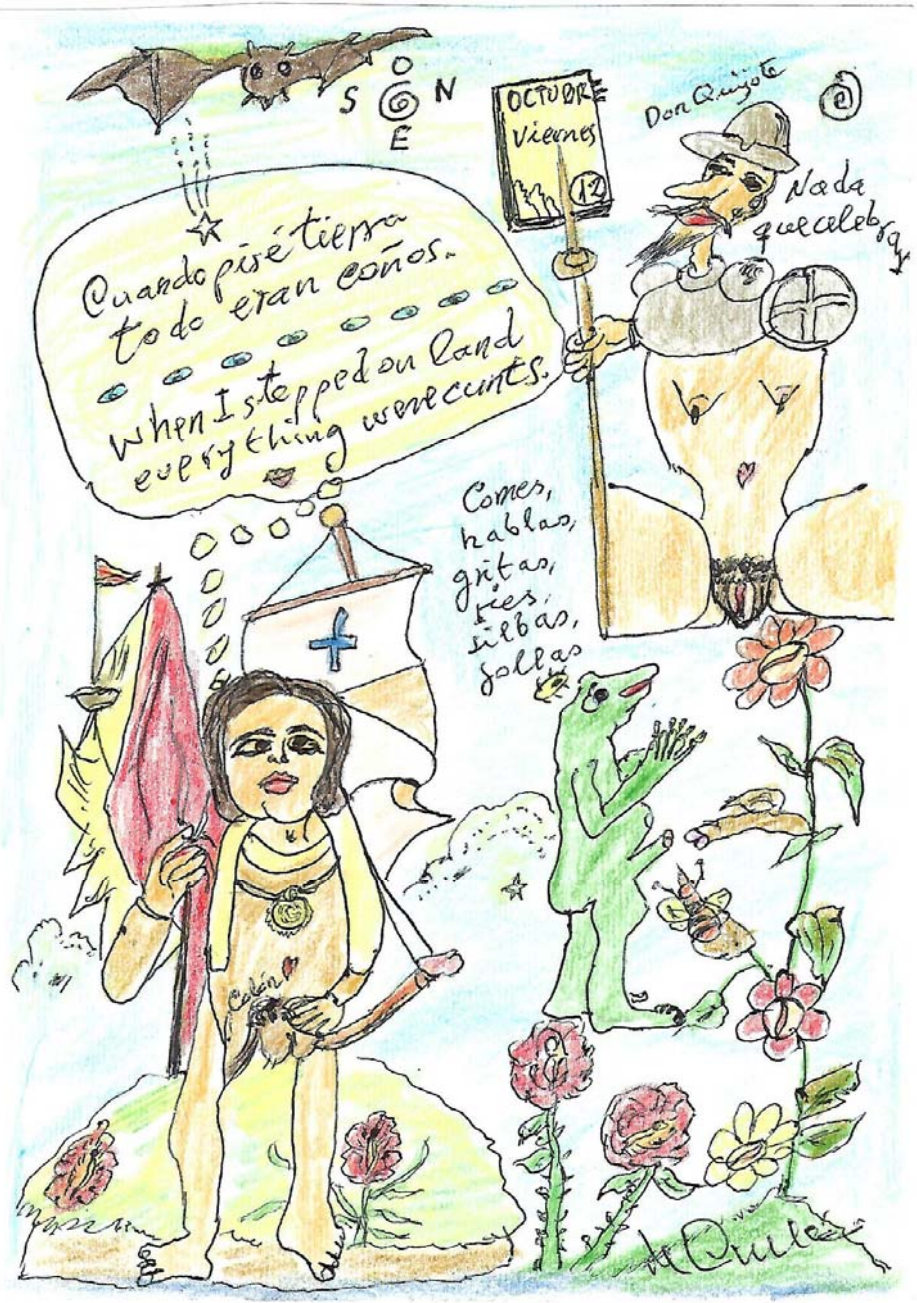 O
S N
E
OCTUBRE
Viernes
12
Don Quijote
Nada
que celebrar
Cuando pisé tierra
todo eran coños.
When I stepped on land
everything were cunts.
Comes,
hablas,
gritas,
ries,
silbas,
follas
Colón